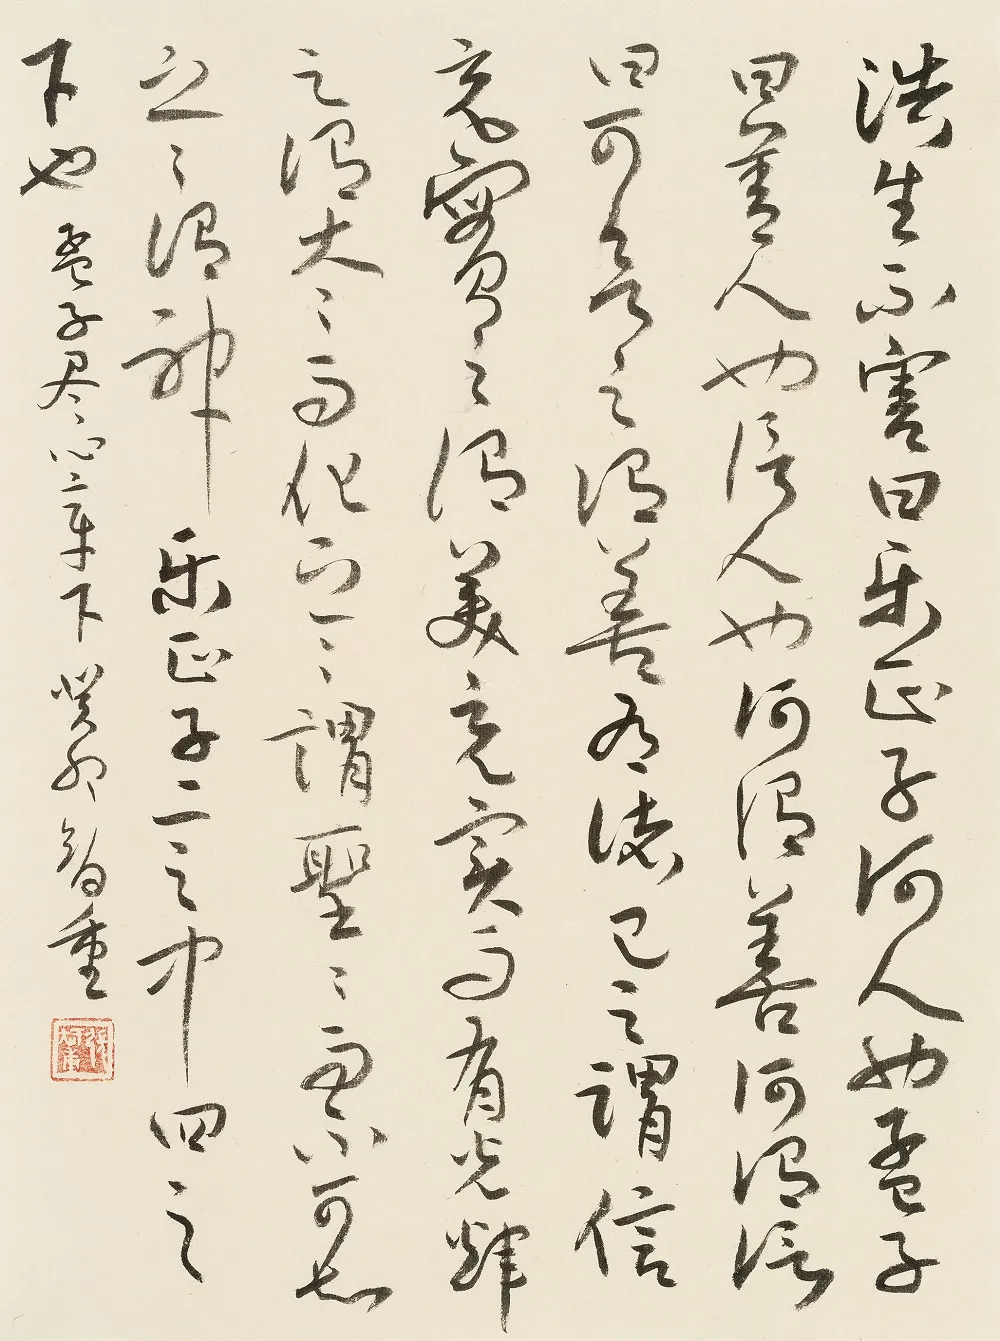 浩生不害曰乐正子何人也孟子
曰善人也信人也何谓善何谓信
曰可欲之谓善有诸己之謂信
充實之谓美充实而有光辉
之谓大〻而化之〻謂聖〻而不可知
之〻谓神乐正子二之中四之
下也 孟子尽心章下 癸卯 智重